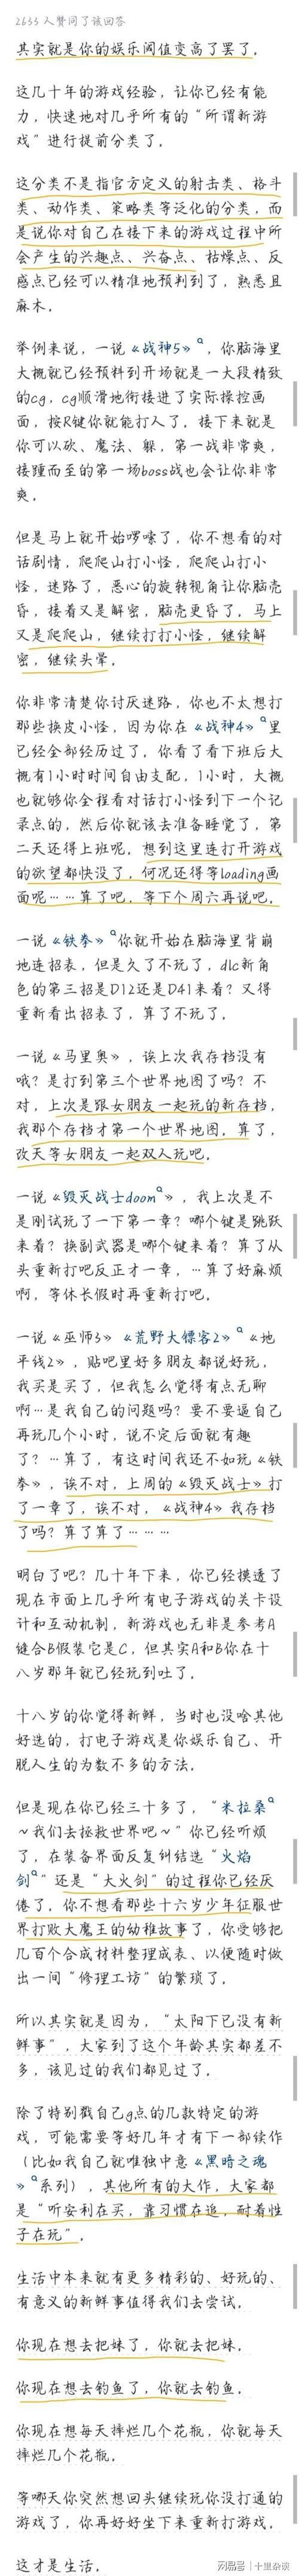 2633 人赞同了该回答
其实就是你的娱乐阈值变高了罢了。
这几十年的游戏经验，让你已经有能
力，快速地对几乎所有的“所谓新游
戏”进行提前分类了。
这分类不是指官方定义的射击类、格斗
类、动作类、策略类等泛化的分类，而
是说你对自己在接下来的游戏过程中所
会产生的兴趣点、兴奋点、枯燥点、反
感点已经可以精准地预判到了，熟悉且
麻木。
举例来说，一说《战神5》，你脑海里
大概就已经预料到开场就是一大段精致
的cg，cg顺滑地衔接进了实际操控画
面，按R键你就能打人了。接下来就是
你可以砍、魔法、躲，第一战非常爽，
接踵而至的第一场boss战也会让你非常
爽。
但是马上就开始啰嗦了，你不想看的对
话剧情，爬爬山打小怪，爬爬山打小
怪，迷路了，恶心的旋转视角让你脑壳
昏，接着又是解密，脑壳更昏了，马上
又是爬爬山，继续打打小怪，继续解
密，继续头晕。
你非常清楚你讨厌迷路，你也不太想打
那些换皮小怪，因为你在《战神4》里
已经全部经历过了。你看了看下班后大
概有1小时时间自由支配，1小时，大概
也就够你全程看对话打小怪到下一个记
录点的，然后你就该去准备睡觉了，第
二天还得上班呢。想到这里连打开游戏
的欲望都快没了，何况还得等loading画
面呢……算了吧，等下个周六再说吧。
一说《铁拳》你就开始在脑海里背崩
地连招表，但是久了不玩了，dlc新角
色的第三招是D12还是D41来着？又得
重新看出招表了，算了不玩了。
一说《马里奥》，诶上次我存档没有
哦？是打到第三个世界地图了吗？不
对，上次是跟女朋友一起玩的新存档，
我那个存档才第一个世界地图，算了，
改天等女朋友一起双人玩吧。
一说《毁灭战士doom》，我上次是不
是刚试玩了一下第一章？哪个键是跳跃
来着？换副武器是哪个键来着？算了从
头重新打吧反正才一章，…算了好麻烦
啊，等休长假时再重新打吧。
一说《巫师3》《荒野大镖客2》《地
平线2》，贴吧里好多朋友都说好玩，
我买是买了，但我怎么觉得有点无聊
啊…是我自己的问题吗？要不要逼自己
再玩几个小时，说不定后面就有趣
了？…算了，有这时间我还不如玩《铁
拳》，诶不对，上周的《毁灭战士》打
了一章了，诶不对，《战神4》我存档
了吗？算了算了………
明白了吧？几十年下来，你已经摸透了
现在市面上几乎所有电子游戏的关卡设
计和互动机制，新游戏也无非是参考A
缝合B假装它是C，但其实A和B你在十
八岁那年就已经玩到吐了。
十八岁的你觉得新鲜，当时也没啥其他
好选的，打电子游戏是你娱乐自己、开
脱人生的为数不多的方法。
但是现在你已经三十多了，“米拉桑
～我们去拯救世界吧～”你已经听烦
了，在装备界面反复纠结选“火焰
剑”还是“大火剑”的过程你已经厌
倦了，你不想看那些十六岁少年征服世
界打败大魔王的幼稚故事了，你受够把
几百个合成材料整理成表、以便随时做
出一间“修理工坊”的繁琐了。
所以其实就是因为，“太阳下已没有新
鲜事”，大家到了这个年龄其实都差不
多，该见过的我们都见过了。
除了特别戳自己g点的几款特定的游
戏，可能需要等好几年才有下一部续作
（比如我自己就唯独中意《黑暗之魂
》系列），其他所有的大作，大家都
是“听安利在买，靠习惯在追，耐着性
子在玩”。
生活中本来就有更多精彩的、好玩的、
有意义的新鲜事值得我们去尝试。
你现在想去把妹了，你就去把妹。
你现在想去钓鱼了，你就去钓鱼。
你现在想每天摔烂几个花瓶，你就每天
摔烂几个花瓶。
等哪天你突然想回头继续玩你没打通的
游戏了，你再好好坐下来重新打游戏。
这才是生活。
网易号 | 十里杂谈